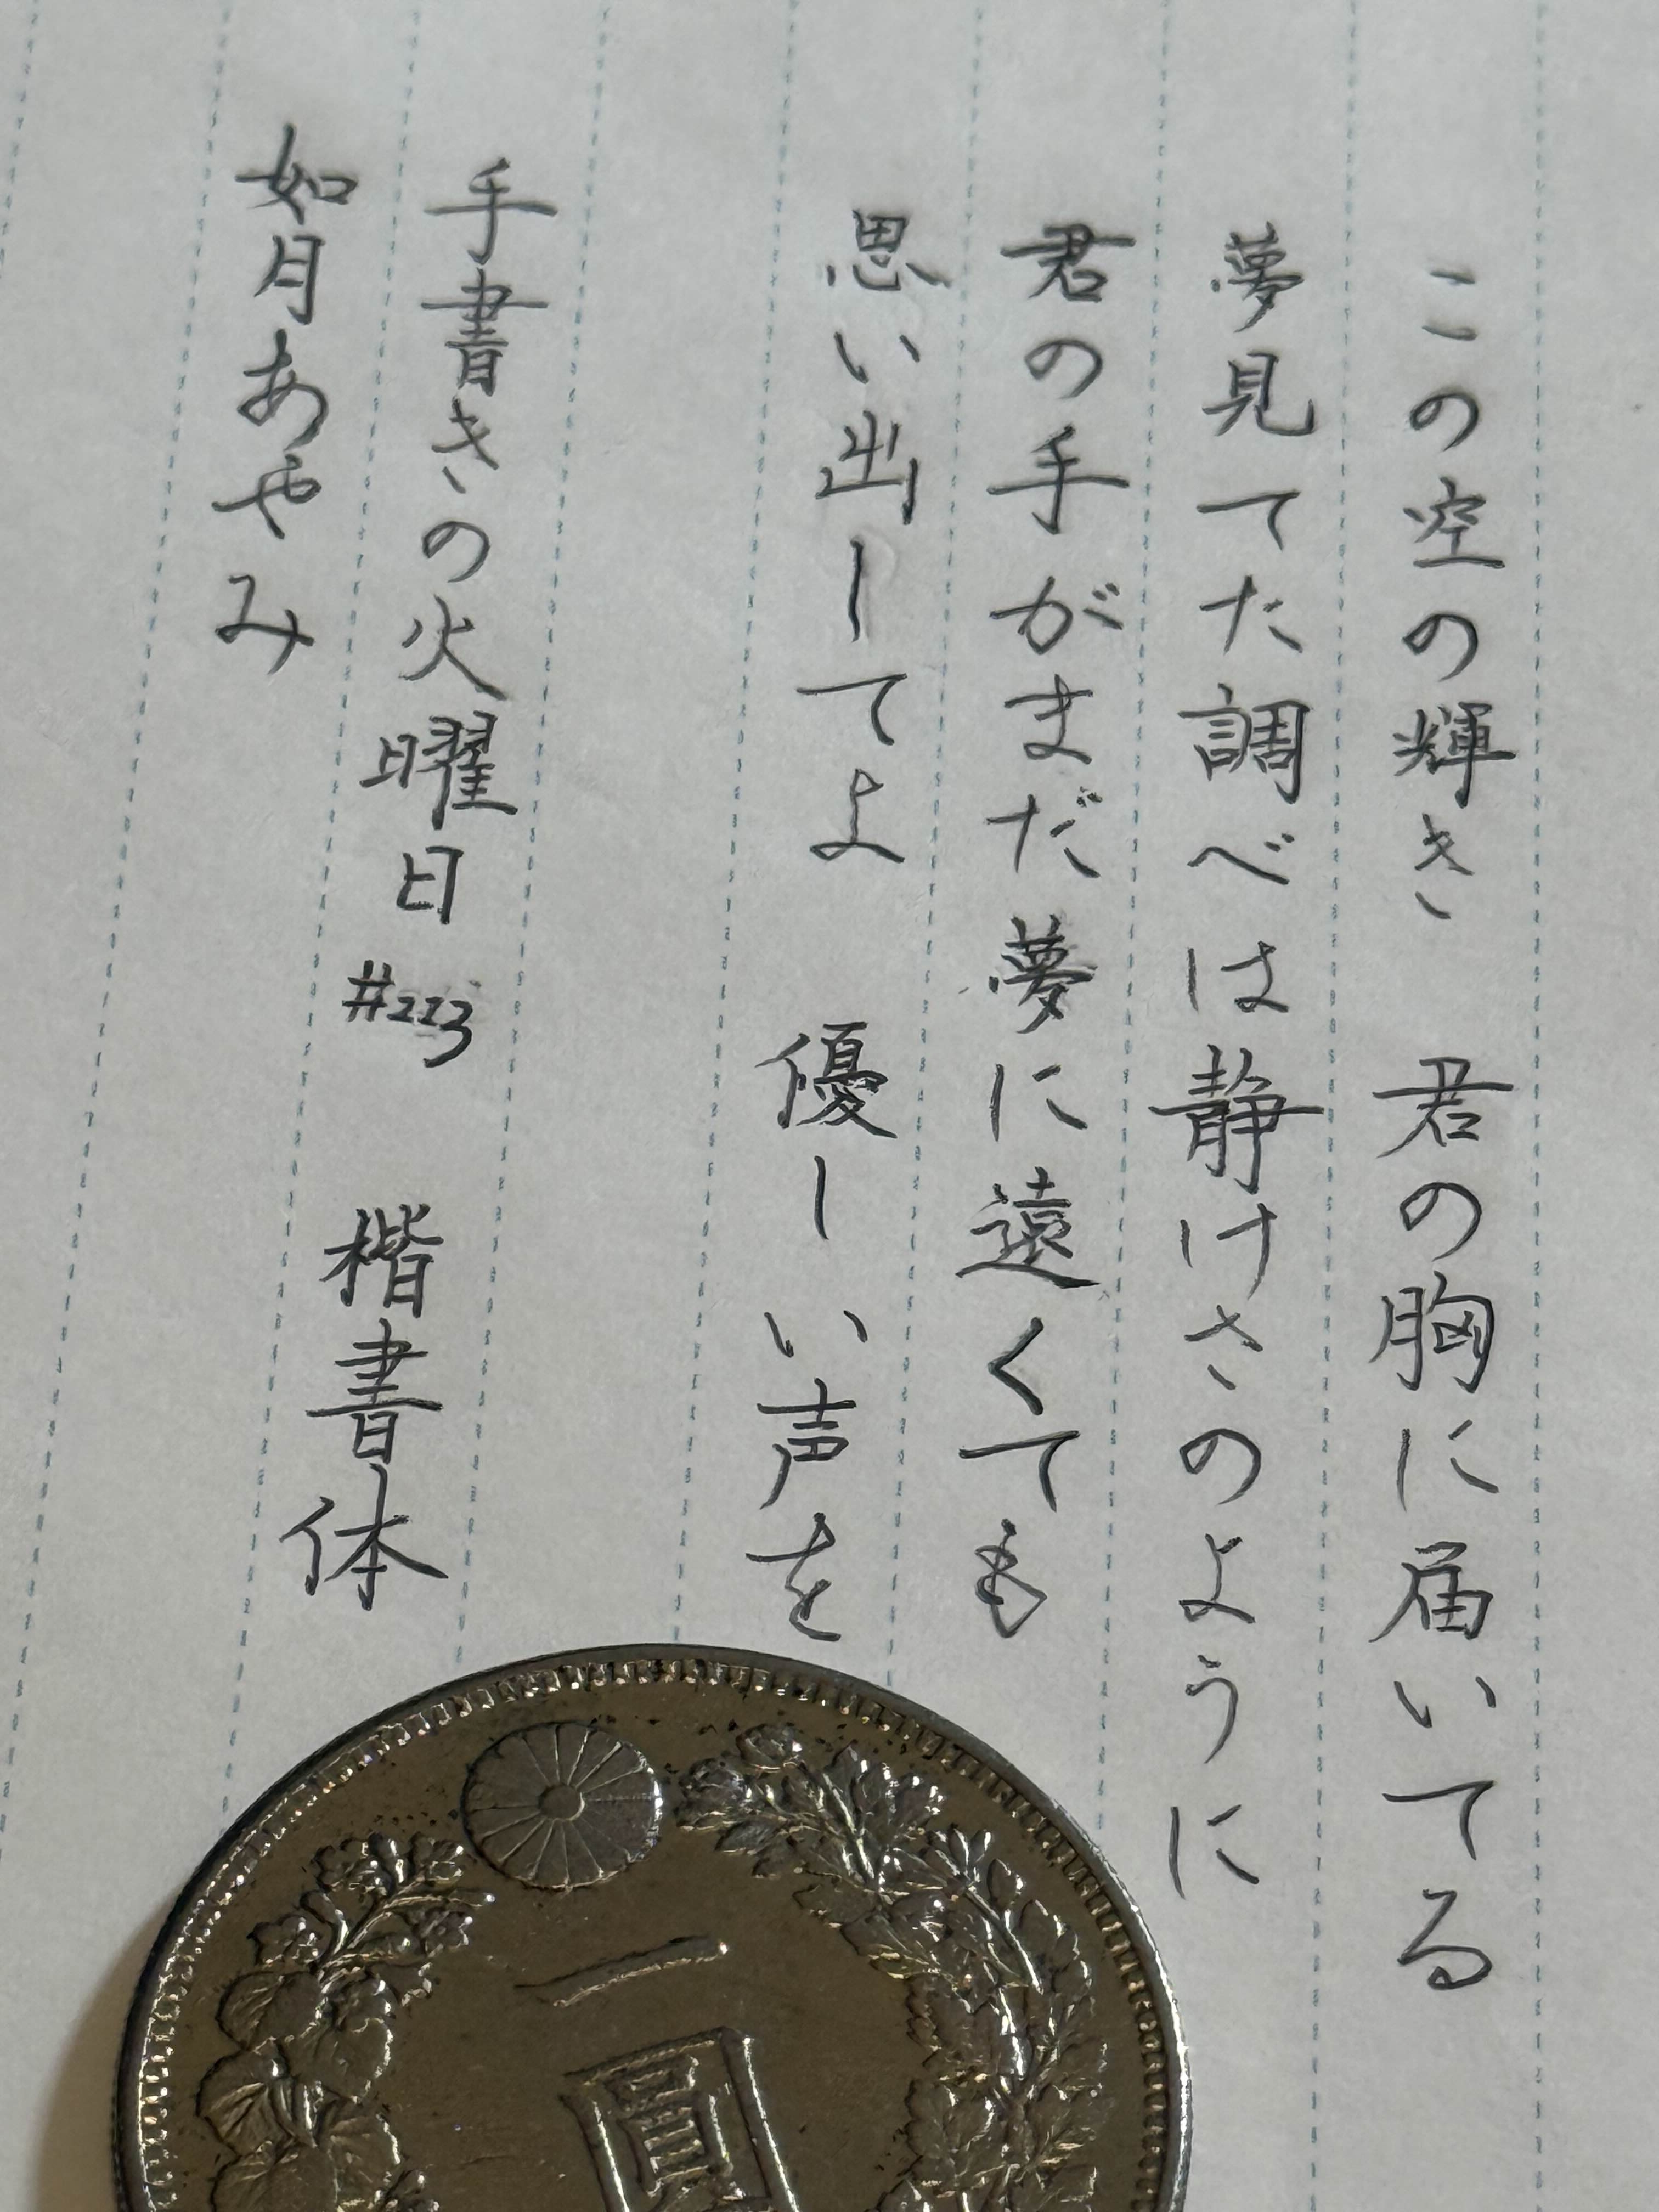 この空の輝き 君の胸に届いてる
夢見てた調べは静けさのように
君の手がまだ夢に遠くても
思い出してよ 優しい声を
手書きの火曜日 #223 楷書体
如月あやみ
一圓